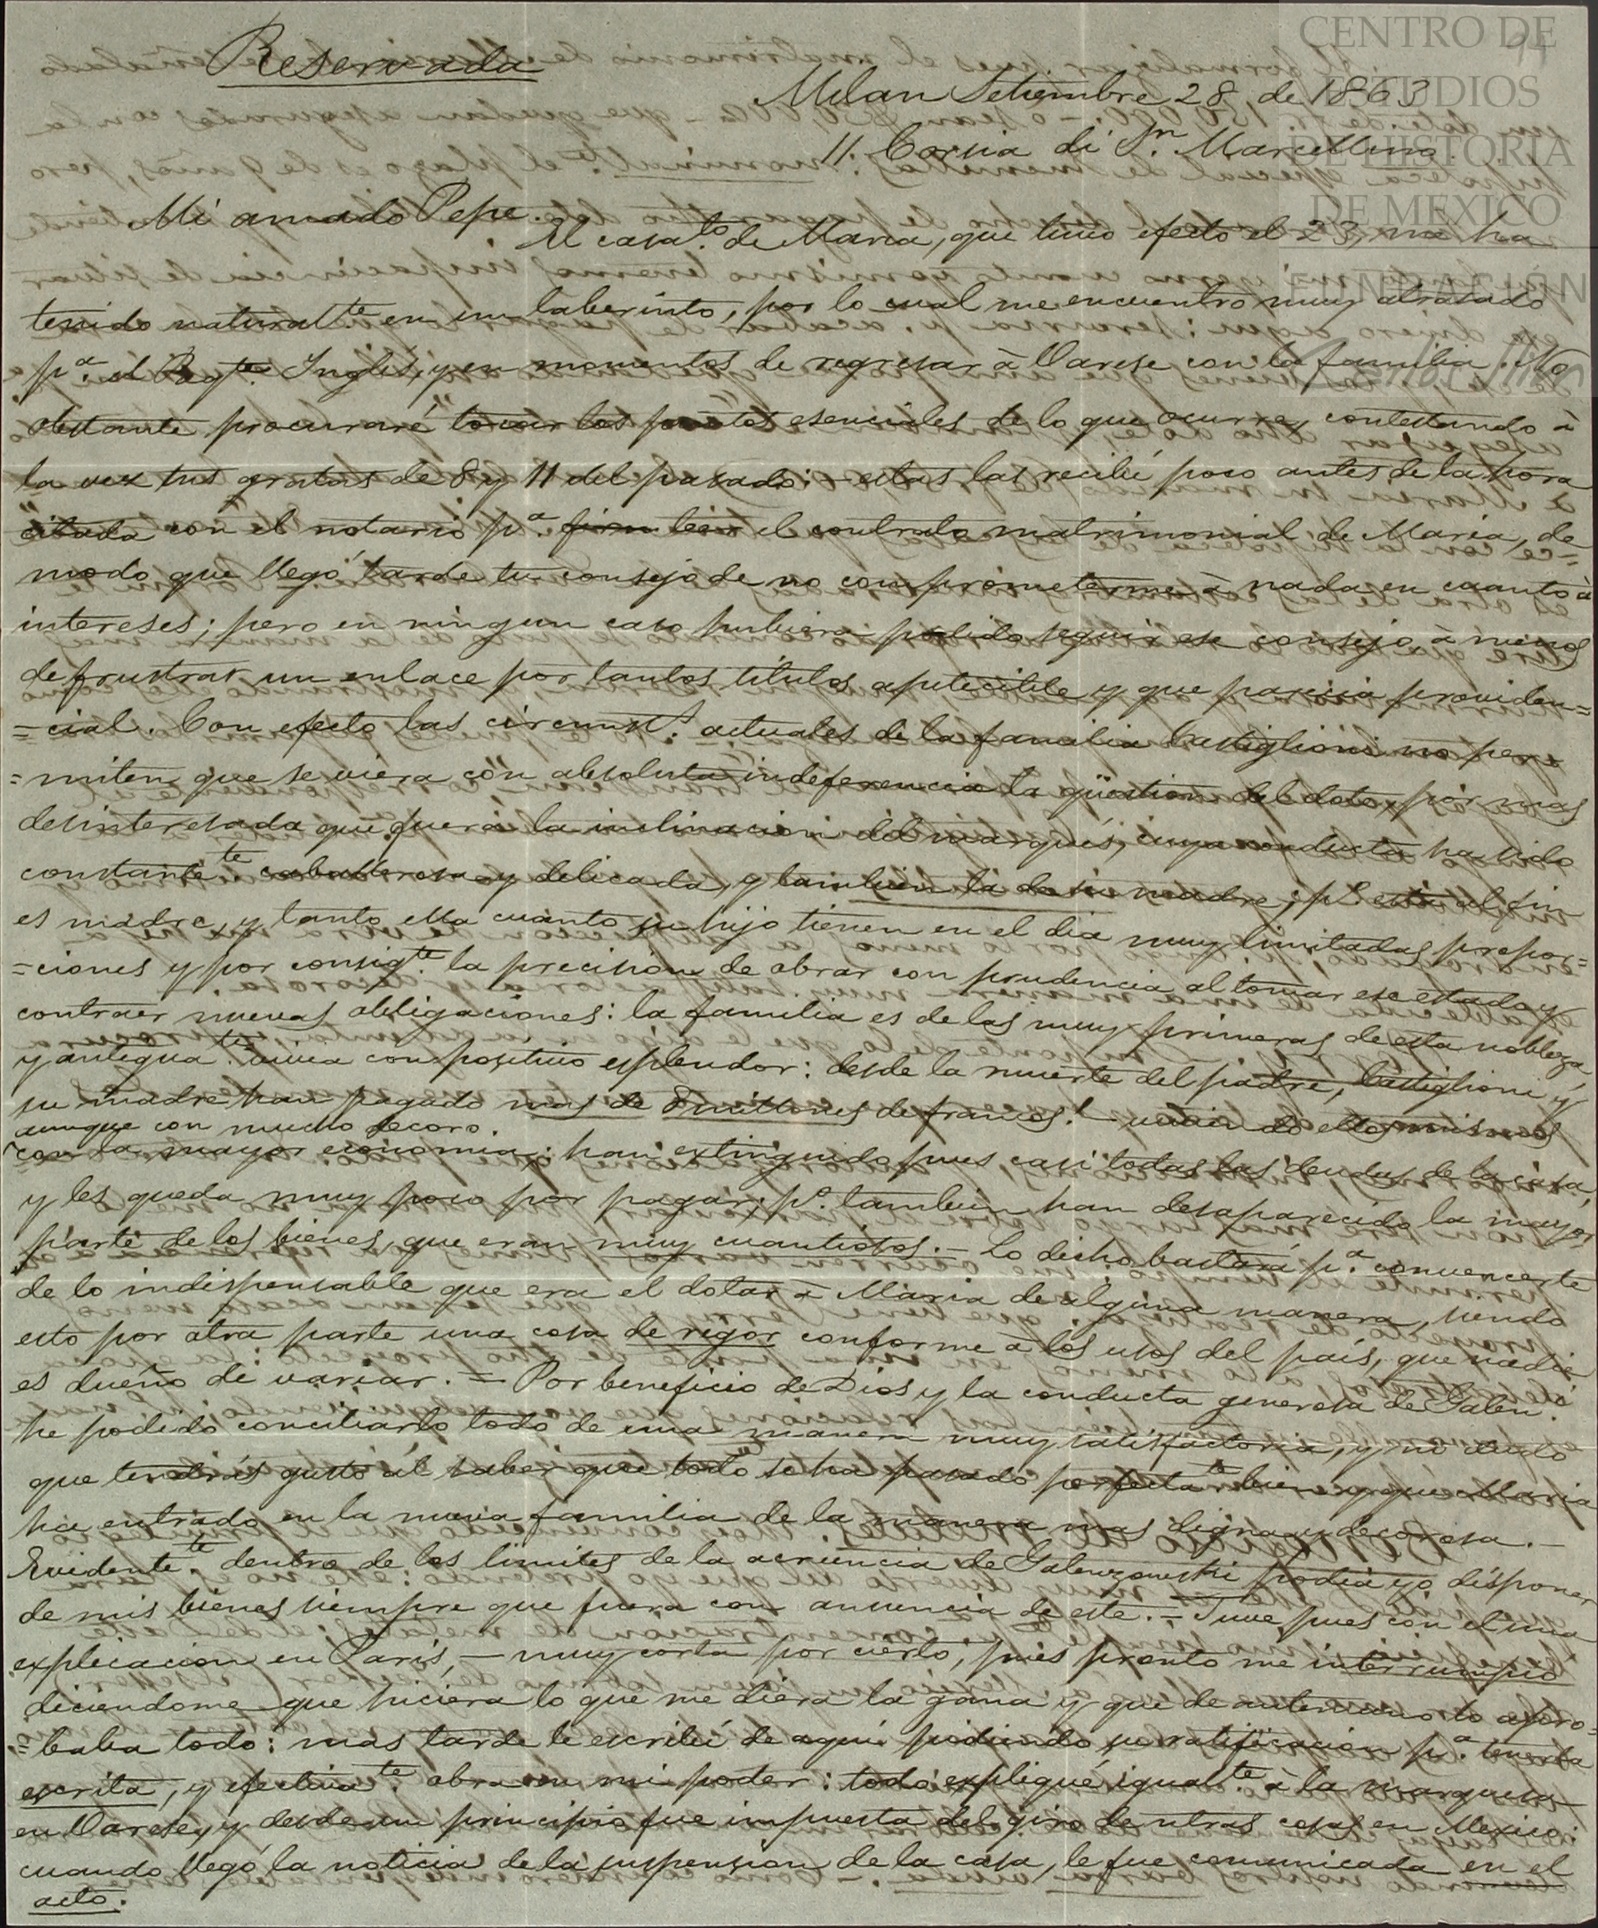 CENTRO DE
ESTUDIOS
DE HISTORIA
DE MEXICO
FUNDACIÓN
Carlos Slim
94
Reservada
Milan Setiembre 28 de 1863
11. Corsia di Sn. Marcellino.
Mi amado Pepe.
El casato. de Maria, que tuvo efecto el 23, me ha
tenido naturalte. en un laberinto, por lo cual me encuentro muy atrasado
pa. el Paqte. Inglés, y en momentos de regresar à Varese con la familia. No
obstante procuraré tocar los puntos esenciales de lo que ocurre, contestando à
la vez tus gratas de 8 y 11 del pasado: – estas las recibí poco antes de la hora
citada con el notario pa. el contrato matrimonial de Maria, de=
modo que llegó tarde tu consejo de no comprometerme à nada en cuanto à
intereses; pero en ningun caso hubiera podido seguir ese consejo, à menos
de frustrar un enlace por tantos titulos apetecible y que parecia providen=
=cial. Con efecto las circunsts. actuales de la familia Castiglioni no per=
=miten que se viera con absoluta indeferencia la qüestion del dote, por mas
desinteresada que fuera la inclinacion del marqués, cuya conducta ha sido
constantete. caballerosa y delicada, y tambien la de su madre; ps. esta al fin
es madre, y tanto ella cuanto su hijo tienen en el dia muy limitadas propor=
=ciones y por consigte. la precision de obrar con prudencia al tomar ese estado y
contraer nuevas obligaciones: la familia es de las muy primeras de esta nobleza,
y antiguate. vivia con positivo esplendor: desde la muerte del padre, Castiglioni y
su madre han pagado mas de 8 millones de francos! – viviendo ellos mismos
aunque con mucho decoro.
con la mayor economia: han extinguido pues casi todas las deudas de la casa,
y les queda muy poco por pagar; po. tambien han desaparecido la mayor
parte de los bienes, que eran muy cuantiosos. – Lo dicho bastará pa. convencerte
de lo indispensable que era el dotar à Maria de alguna manera, siendo
esto por otra parte una cosa de rigor conforme à los usos del país, que nadie
es dueño de variar. = Por beneficio de Dios y la conducta generosa de Galen.
he podido conciliarlo todo de una manera muy satisfactoria, y no dudo
que tendrás gusto al saber que todo se ha pasado perfectate. bien y que Maria
ha entrado en la nueva familia de la manera mas digna y decorosa. –
Evidentete. dentro de los limites de la acreencia de Galenzowski podia yo disponer
de mis bienes siempre que fuera con anuencia de este. – Tuve pues con el una
explicacion en Paris, – muy corta por cierto, pues pronto me interrumpió
diciendome que hiciera lo que me diera la gana y que de antemano lo apro=
=baba todo: mas tarde le escribí de aqui pidiendo su ratificacion pa. tenerla
escrita, y efectivate. obra en mi poder: todo expliqué igualte. à la marquesa
en Varese, y desde un principio fue impuesta del giro de ntras cosas en Mexico:
cuando llegó la noticia de la suspension de la casa, le fue comunicada en el
acto.